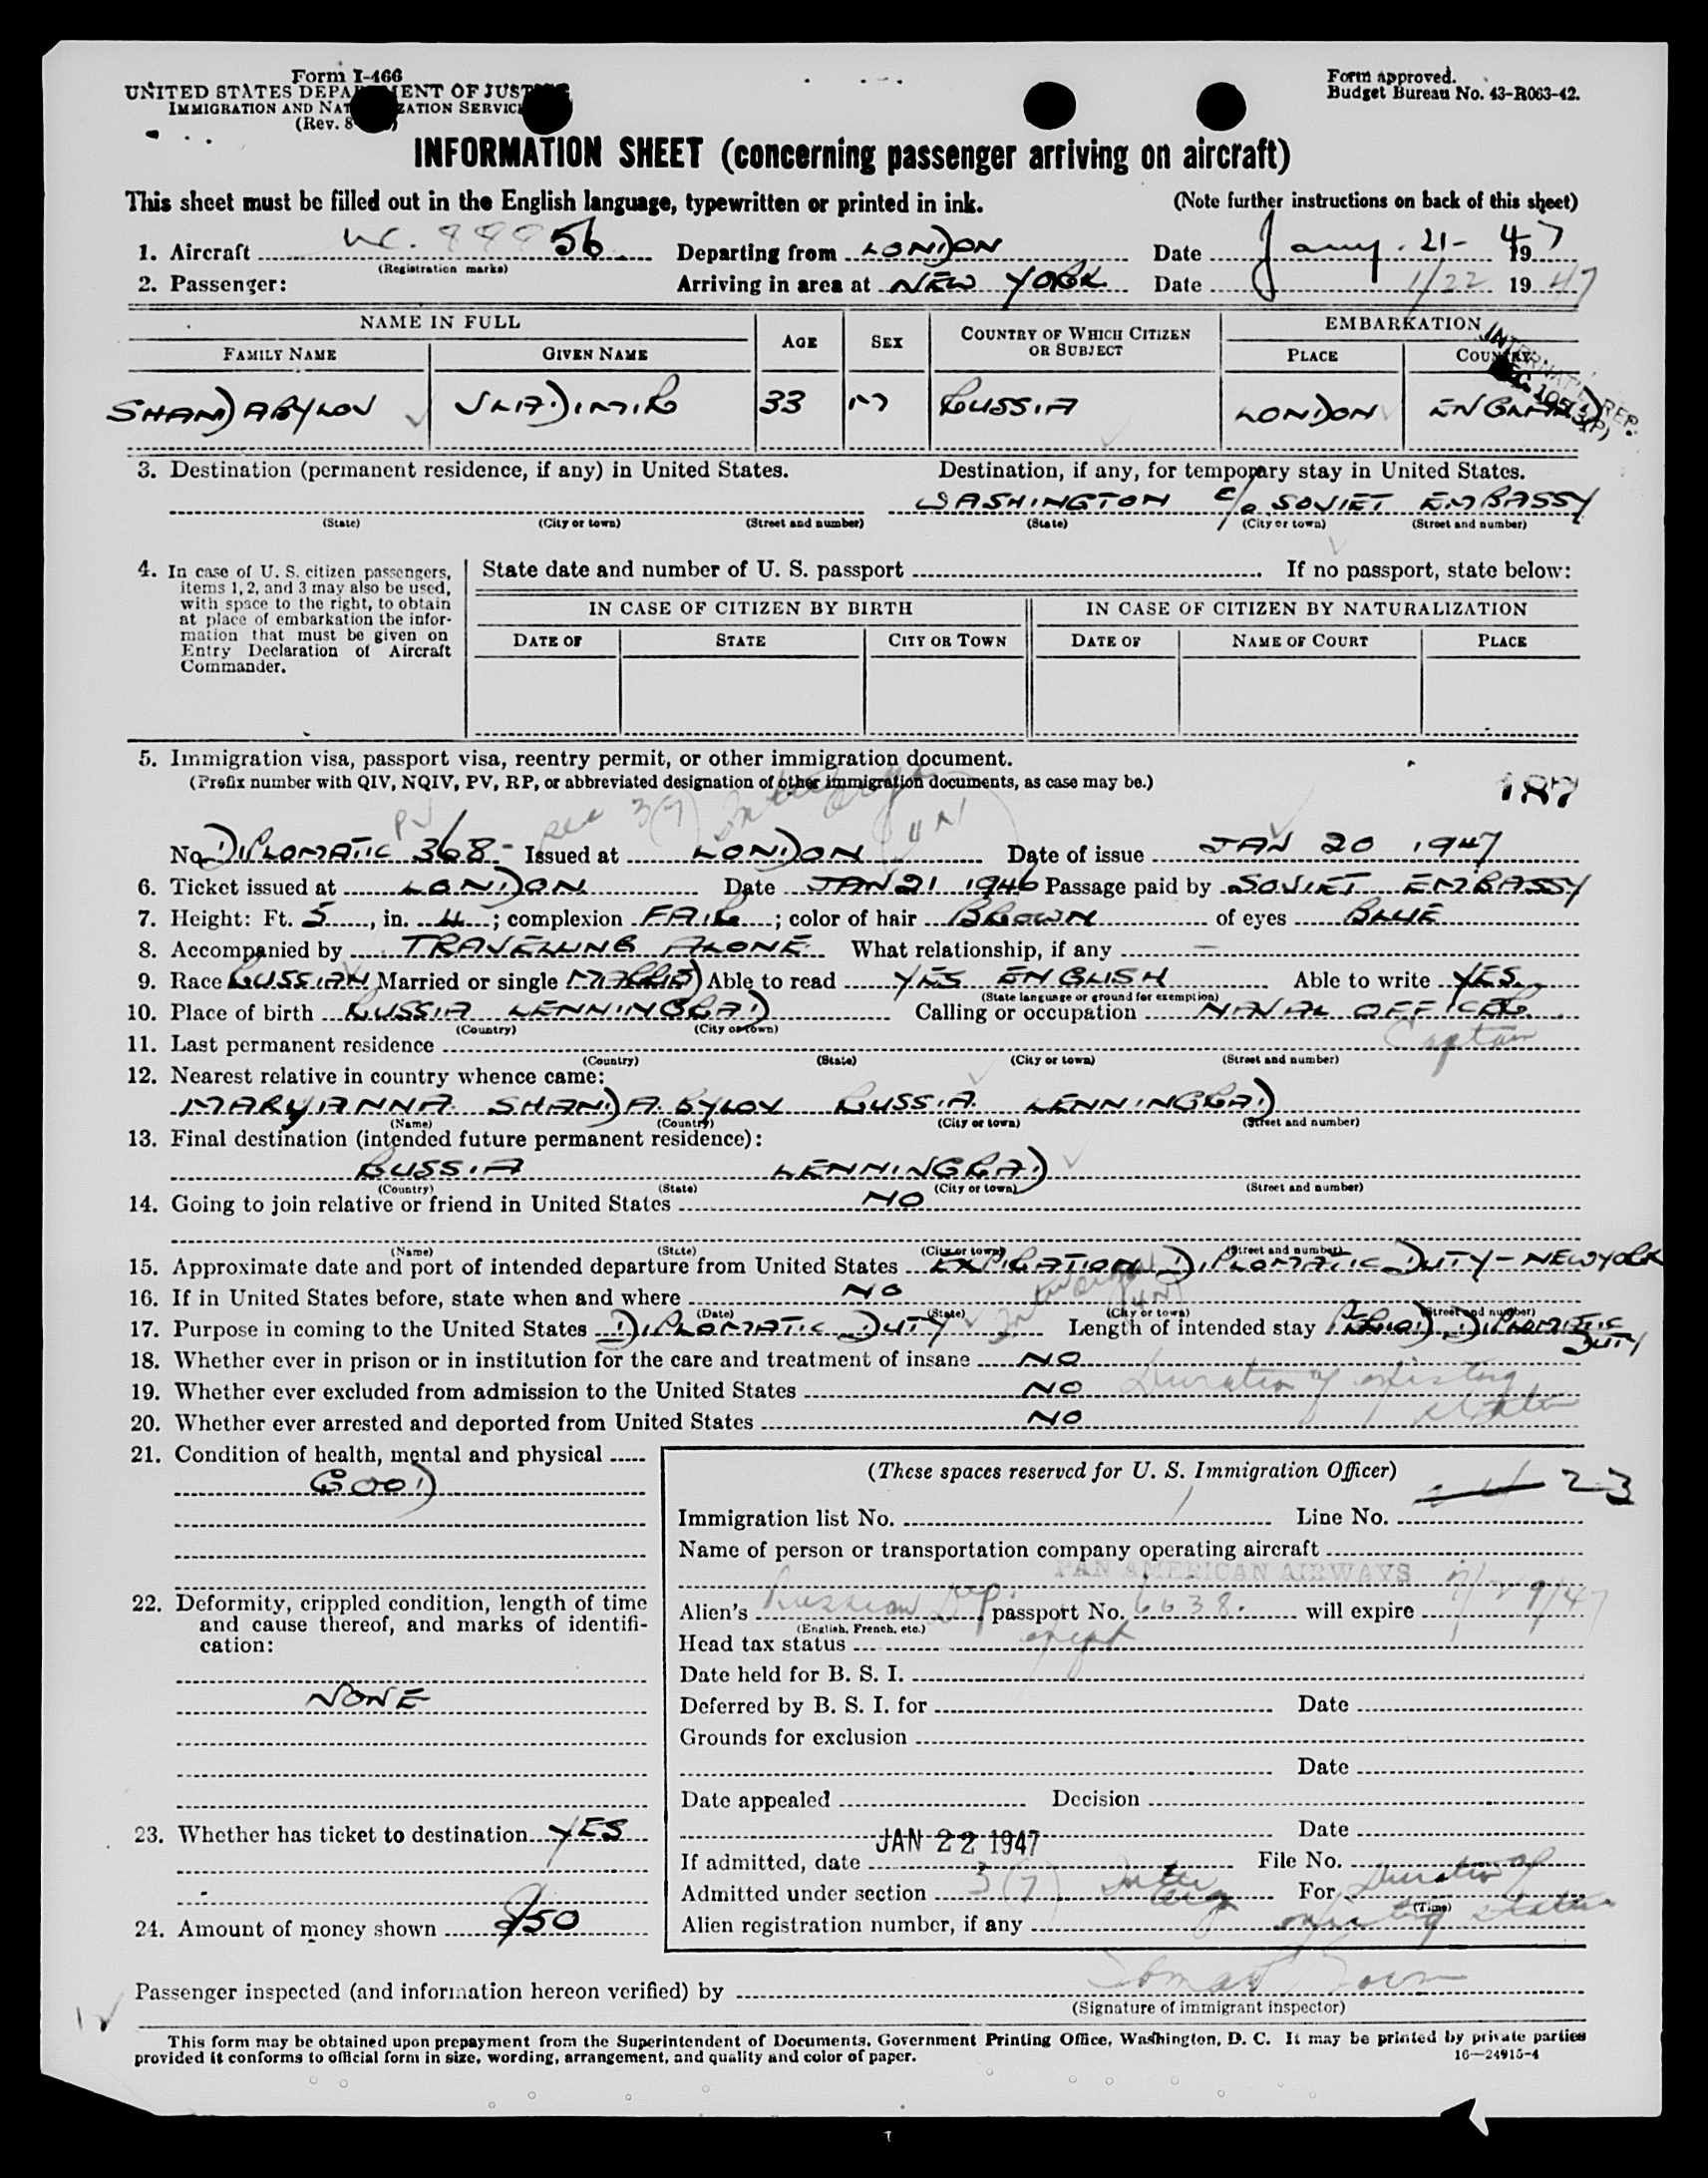 Form I-466
UNITED STATES DEPARTMENT OF JUSTICE
IMMIGRATION AND NATURALIZATION SERVICE
(Rev. 8
Form approved.
Budget Bureau No. 43-R063-42.
INFORMATION SHEET (concerning passenger arriving on aircraft)
This sheet must be filled out in the English language, typewritten or printed in ink.
(Note further instructions on back of this sheet)
1. Aircraft NC. 88856 Departing from LONDON Date Jany. 21- 1947
(Registration marks)
2. Passenger: Arriving in area at NEW YORK Date 1/22 1947
NAME IN FULL AGE SEX COUNTRY OF WHICH CITIZEN OR SUBJECT EMBARKATION
FAMILY NAME GIVEN NAME PLACE COUNTRY
SHANDABYLOV VLADIMIR 33 M RUSSIA LONDON ENGLAND
INTERNAT'L REP.
SEC. 3(7)
3. Destination (permanent residence, if any) in United States. Destination, if any, for temporary stay in United States.
WASHINGTON c/o SOVIET EMBASSY
(State) (City or town) (Street and number) (State) (City or town) (Street and number)
4. In case of U. S. citizen passengers, items 1, 2, and 3 may also be used, with space to the right, to obtain at place of embarkation the information that must be given on Entry Declaration of Aircraft Commander.
State date and number of U. S. passport If no passport, state below:
IN CASE OF CITIZEN BY BIRTH IN CASE OF CITIZEN BY NATURALIZATION
DATE OF STATE CITY OR TOWN DATE OF NAME OF COURT PLACE
5. Immigration visa, passport visa, reentry permit, or other immigration document.
(Prefix number with QIV, NQIV, PV, RP, or abbreviated designation of other immigration documents, as case may be.)
187
PV sec 3(7) UN
No. DIPLOMATIC 368- Issued at LONDON Date of issue JAN 20 1947
6. Ticket issued at LONDON Date JAN 21 1946 Passage paid by SOVIET EMBASSY
7. Height: Ft. 5, in. 4; complexion FAIR; color of hair BROWN of eyes BLUE
8. Accompanied by TRAVELLING ALONE What relationship, if any =
9. Race RUSSIAN Married or single MARRIED Able to read YES ENGLISH Able to write YES.
(State language or ground for exemption)
10. Place of birth RUSSIA LENNINGRAD Calling or occupation NAVAL OFFICER
(Country) (City or town)
Captain
11. Last permanent residence
(Country) (State) (City or town) (Street and number)
12. Nearest relative in country whence came:
MARYANNA SHANDABYLOV RUSSIA LENNINGRAD
(Name) (Country) (City or town) (Street and number)
13. Final destination (intended future permanent residence):
RUSSIA LENNINGRAD
(Country) (State) (City or town) (Street and number)
14. Going to join relative or friend in United States NO
(Name) (State) (City or town) (Street and number)
15. Approximate date and port of intended departure from United States EXPIRATION DIPLOMATIC DUTY - NEW YORK
16. If in United States before, state when and where NO
(Date) (State) (City or town) (Street and number)
17. Purpose in coming to the United States DIPLOMATIC DUTY Length of intended stay PERIOD DIPLOMATIC DUTY
18. Whether ever in prison or in institution for the care and treatment of insane NO
19. Whether ever excluded from admission to the United States NO
Duration of existing status
20. Whether ever arrested and deported from United States NO
21. Condition of health, mental and physical
GOOD
22. Deformity, crippled condition, length of time and cause thereof, and marks of identification:
NONE
23. Whether has ticket to destination YES
24. Amount of money shown $150
(These spaces reserved for U. S. Immigration Officer)
Immigration list No. 1 Line No. 23
Name of person or transportation company operating aircraft
PAN AMERICAN AIRWAYS
Alien's Russian Dip. passport No. 6638. will expire 7/29/47
(English, French, etc.)
Head tax status exempt
Date held for B. S. I.
Deferred by B. S. I. for Date
Grounds for exclusion
Date
Date appealed Decision
Date
If admitted, date JAN 22 1947 File No.
Admitted under section 3(7) For Duration of
(Time)
Alien registration number, if any existing status
Passenger inspected (and information hereon verified) by
(Signature of immigrant inspector)
This form may be obtained upon prepayment from the Superintendent of Documents, Government Printing Office, Washington, D. C. It may be printed by private parties
provided it conforms to official form in size, wording, arrangement, and quality and color of paper.
16—24915-4